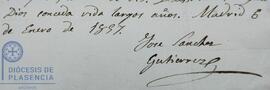 Dios conceda vida largos años. Madrid 6
de Enero de 1857.
Jose Sanchez
Gutierrez
DIÓCESIS DE
PLASENCIA